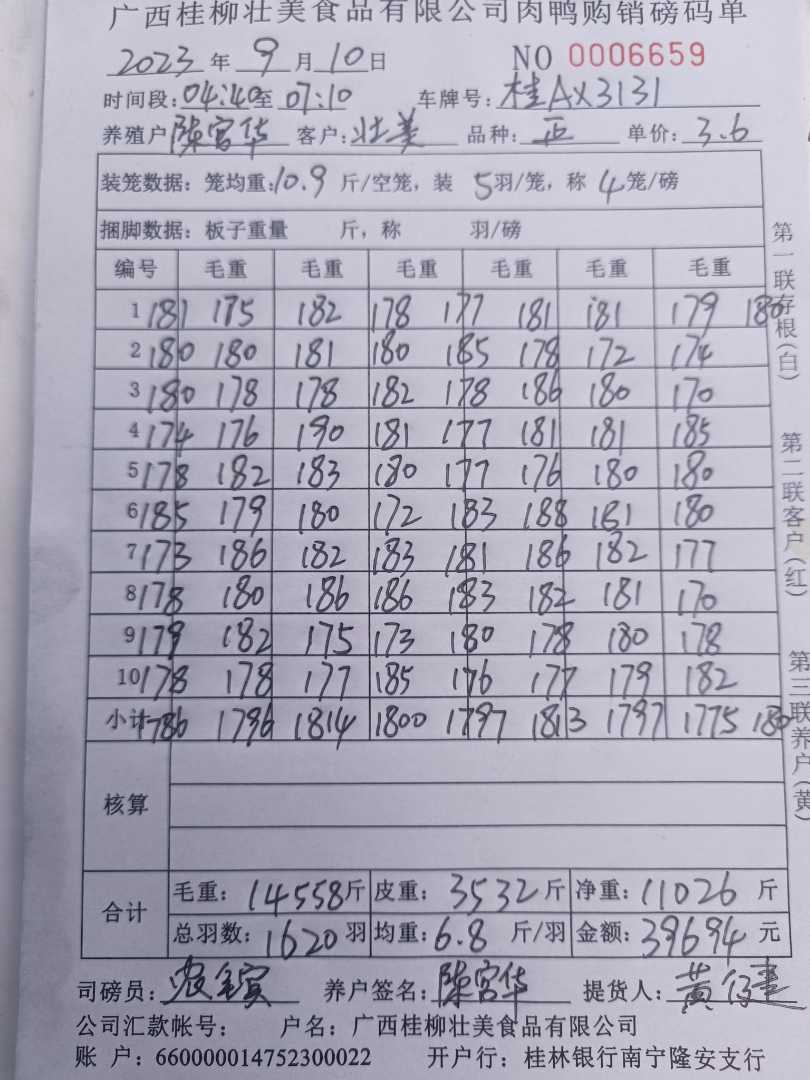 广西桂柳壮美食品有限公司肉鸭购销磅码单
2023年9月10日 NO 0006659
时间段:04:40至07:10 车牌号:桂AX3131
养殖户陈宫华 客户:壮美 品种:正 单价:3.6
装笼数据:笼均重:10.9斤/空笼,装5羽/笼,称4笼/磅
捆脚数据:板子重量 斤,称 羽/磅
编号 毛重 毛重 毛重 毛重 毛重 毛重
1 181 175 182 178 177 181 181 179 180
2 180 180 181 180 185 178 172 174
3 180 178 178 182 178 186 180 170
4 174 176 190 181 177 181 181 185
5 178 182 183 180 177 176 180 180
6 185 179 180 172 183 188 181 180
7 173 186 182 183 181 186 182 177
8 178 180 186 186 183 182 181 170
9 179 182 175 173 180 178 180 178
10 178 178 177 185 176 177 179 182
小计 1786 1796 1814 1800 1797 1813 1797 1775 180
核算
合计 毛重:14558斤 皮重:3532斤 净重:11026斤
总羽数:1620羽 均重:6.8斤/羽 金额:39694元
司磅员: 养户签名:陈宫华 提货人:黄
公司汇款帐号: 户名:广西桂柳壮美食品有限公司
账 户:660000014752300022 开户行:桂林银行南宁隆安支行
第一联存根(白)
第二联客户(红)
第三联养户(黄)